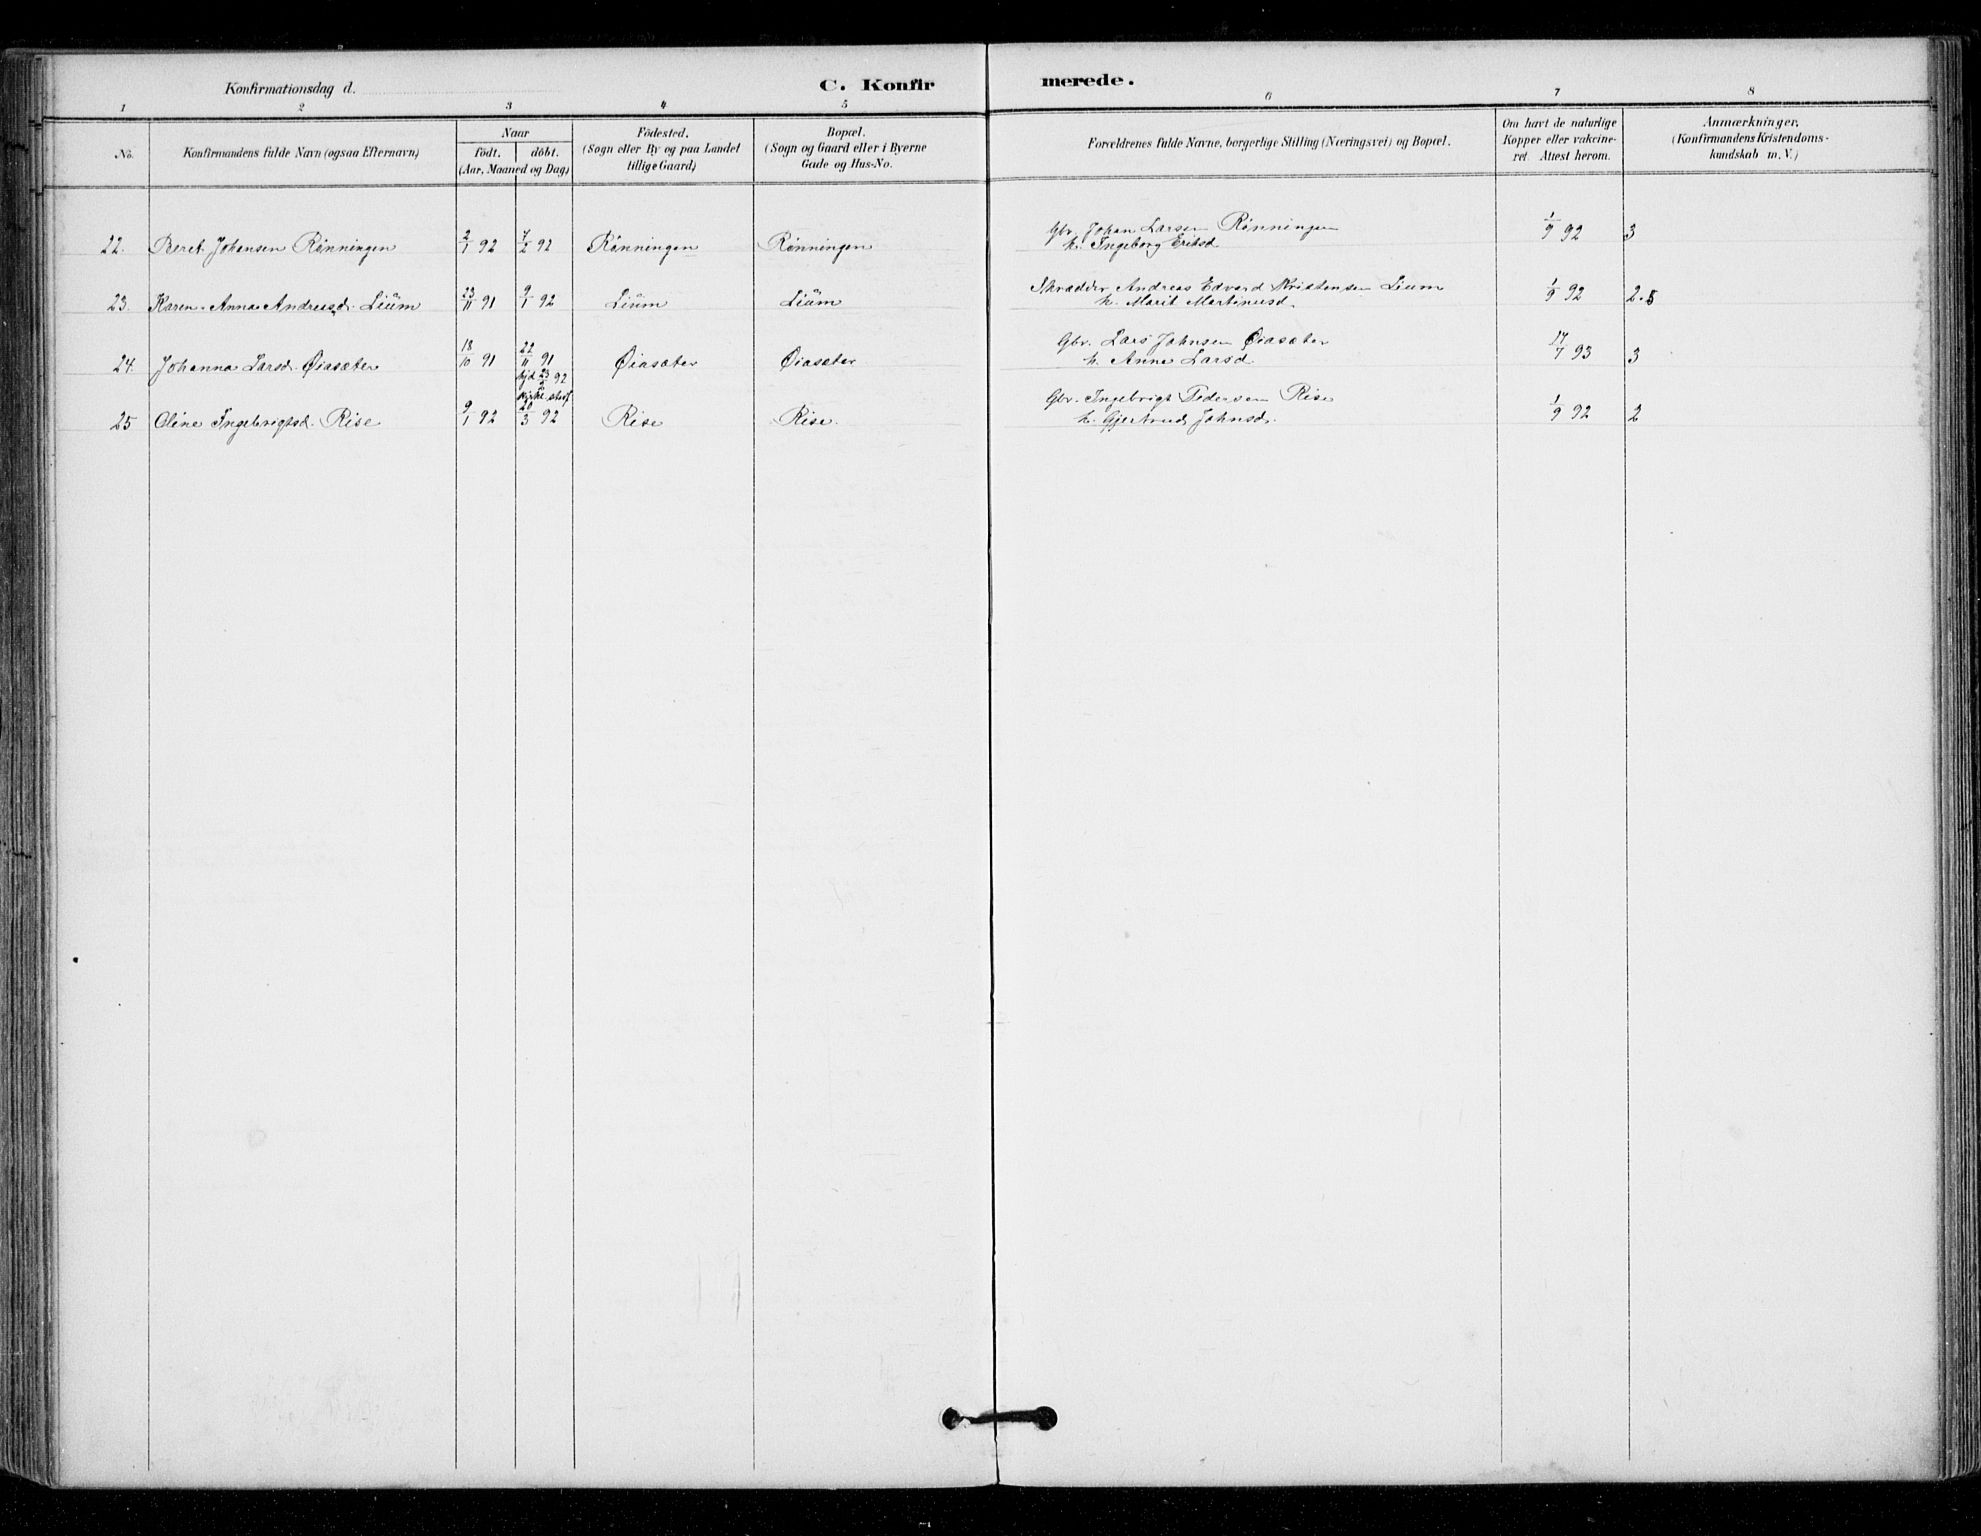 Konfirmationsdag d.
C. Konfir
merede.
1 2 3 4 5 6 7 8
No.
Konfirmandens fulde Navn (ogsaa Efternavn)
Naar
födt. döbt.
(Aar, Maaned og Dag)
Födested.
(Sogn eller By og paa Landet
tillige Gaard)
Bopæl.
(Sogn og Gaard eller i Byerne
Gade og Hus-No.
Forældrenes fulde Navne, borgerlige Stilling (Næringsvei) og Bopæl.
Om havt de naturlige
Kopper eller vakcine-
ret Attest herom.
Anmærkninger.
(Konfirmandens Kristendoms-
kundskab m. V.)
22. Beret Johansen Rönningen 2/1 92 7/2 92 Rönningen Rönningen Gbr. Johan Larsen Rönningen 1/9 92 3
h. Ingeborg Eriksd.
23. Karen Anna Andreasd. Liüm 23/11 91 9/1 92 Liüm Liüm Skrædder Andreas Edvard Kristensen Lium 1/9 92 2.5
h. Marit Martinusd.
24. Johanna Larsd. Øiasæter 18/10 91 22/11 91 Øiasæter Øiasæter Gbr. Lars Johnsen Øiasæter 17/7 93 3
h. Anne Larsd.
hjd 23/2 92
kirke stedf
25 Oline Ingebrigtsd. Rise 9/1 92 20/3 92 Rise Rise. Gbr. Ingebrigt Pedersen Rise 1/9 92 2
h. Gjertrud Johnsd.